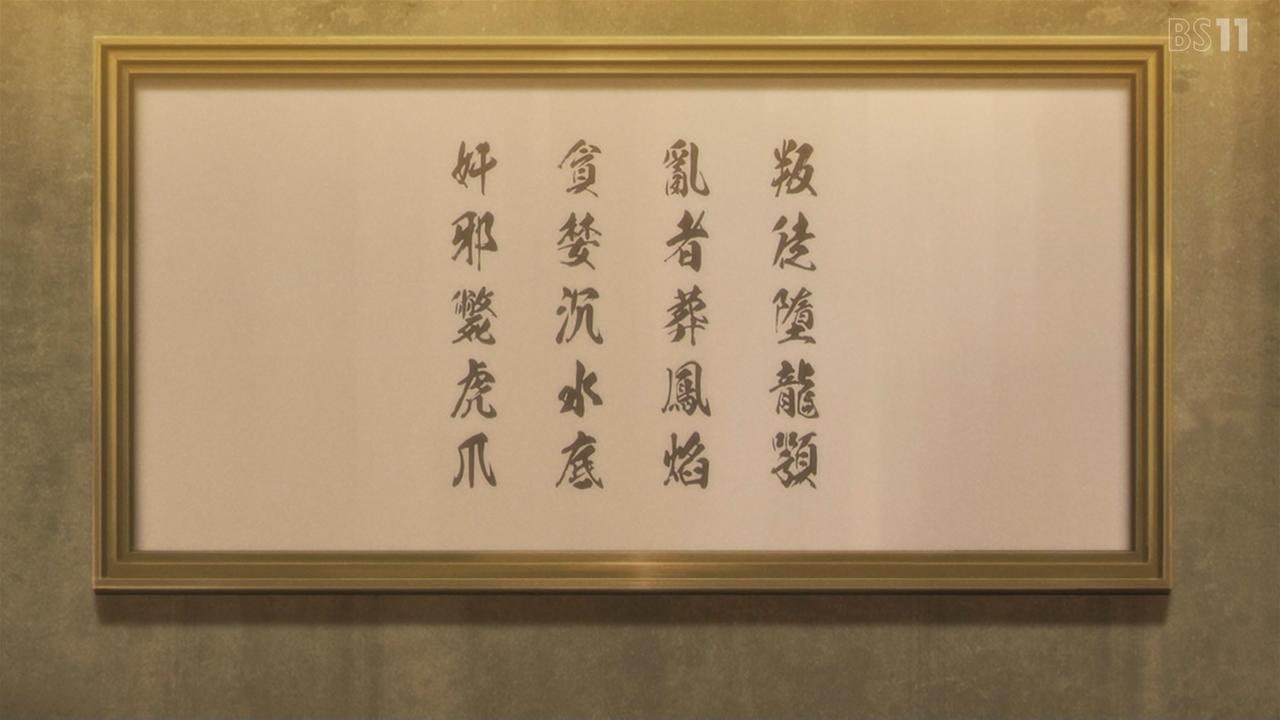 叛徒墮龍顎
亂者葬鳳焰
貪婪沉水底
奸邪斃虎爪
BS11